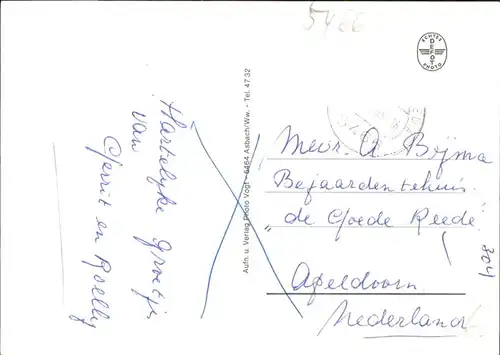 5466
ECHTES
DEHO
PHOTO
Aufn. u. Verlag Photo Vogt - 5464 Asbach/Ww. - Tel. 47 32
Hartelijke Groetjes
van
Gerrit en Roelly
Mevr. A. Bijma
Bejaardentehuis
"de Goede Reede"
804
Apeldoorn
Nederland